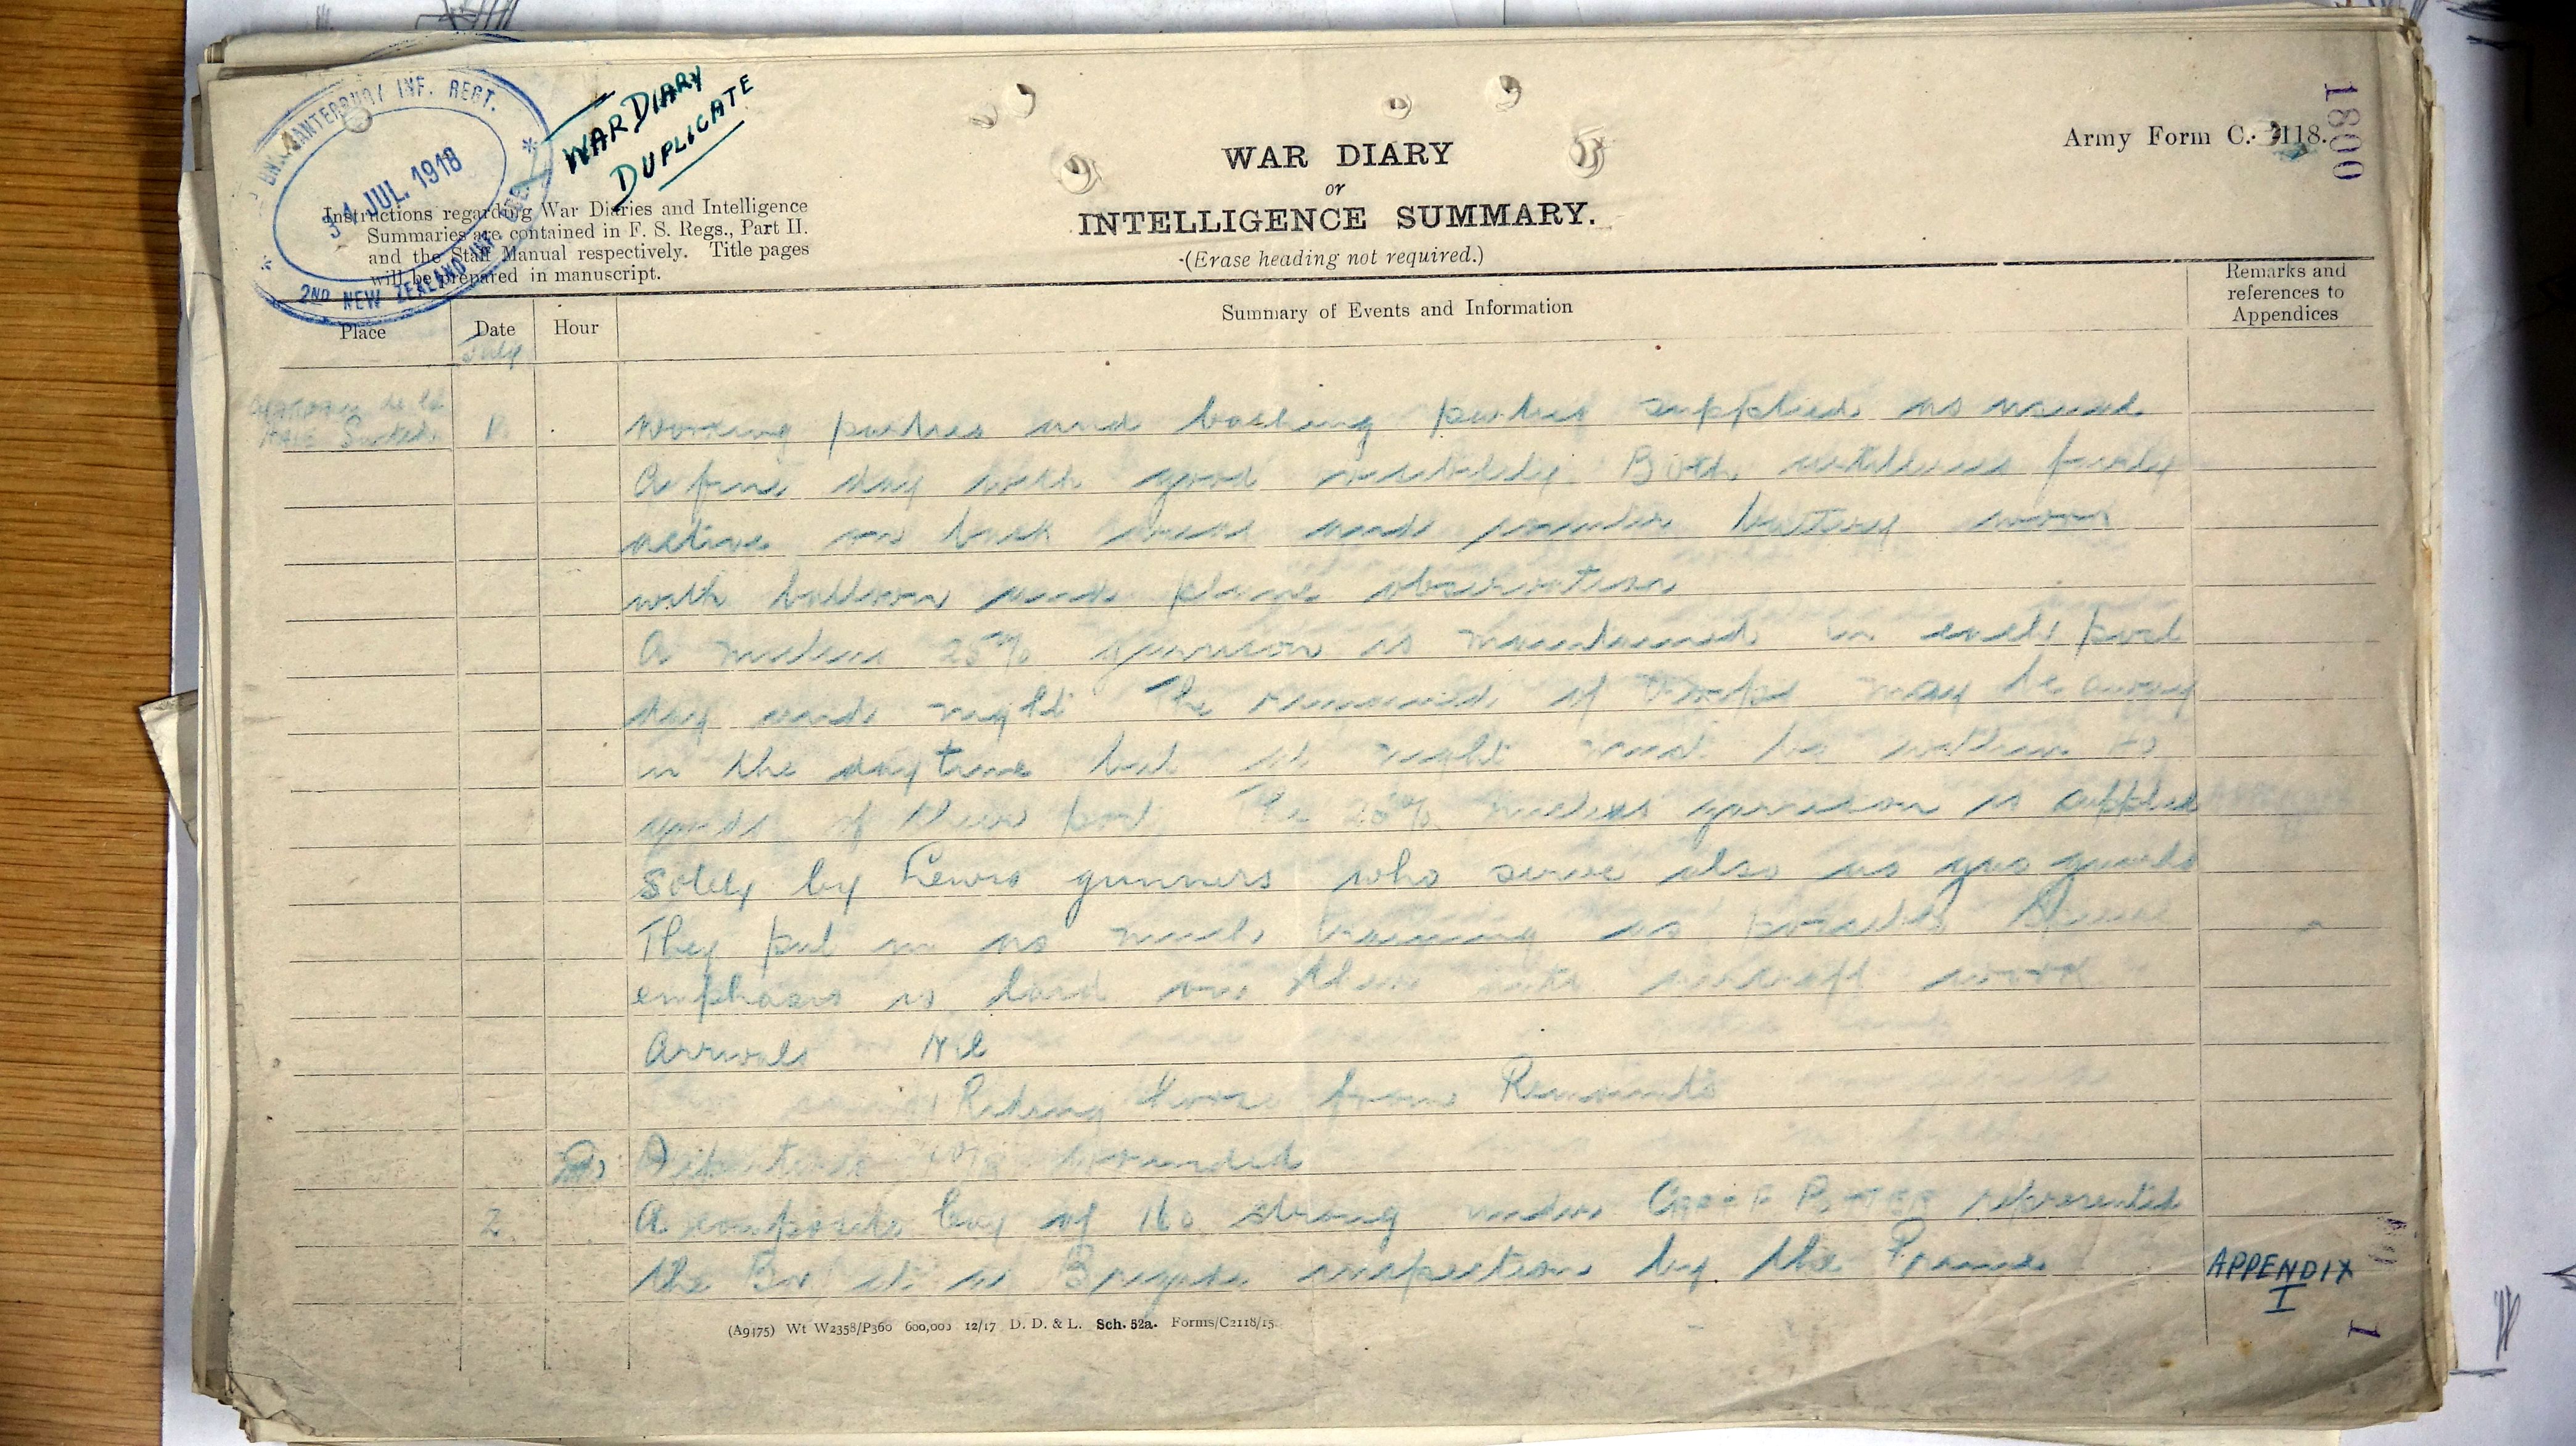 CANTERBURY INF. REGT.
31 JUL. 1918
2ND NEW ZEALAND INF
WAR DIARY
DUPLICATE
WAR DIARY
or
INTELLIGENCE SUMMARY.
(Erase heading not required.)
Army Form C. 2118.
1800
Instructions regarding War Diaries and Intelligence
Summaries are contained in F. S. Regs., Part II.
and the Staff Manual respectively. Title pages
will be prepared in manuscript.
Place
Date
Hour
Summary of Events and Information
Remarks and
references to
Appendices
July
de la
HAIE Switch
1.
Working parties and bathing parties supplied as usual
A fine day with good visibility. Both artilleries fairly
active on back areas and counter battery work
with balloon and plane observation
A nucleus 25% garrison is maintained in each post
day and night The remainder of troops may be away
in the daytime but at night must be within 40
yards of their post. The 25% nucleus garrison is supplied
solely by Lewis gunners who serve also as gas guards
They put in as much training as possible Special
emphasis is laid on their anti aircraft work
Arrivals Nil
1 Riding Horse from Remounts
Departures wounded
2.
A composite Coy of 160 strong under represented
the Bn at a Brigade inspection by the Premier
APPENDIX
I
1
(A9475) Wt W2358/P360 600,000 12/17 D. D. & L. Sch. 52a. Forms/C2118/15